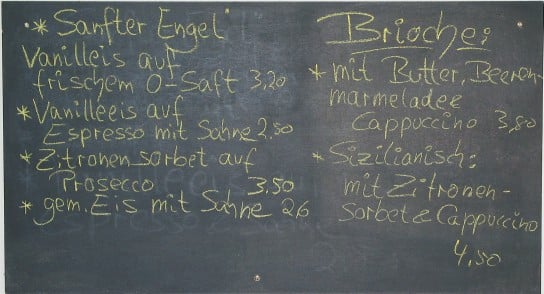 * "Sanfter Engel"
Vanilleis auf
frischem O-Saft 3,20
* Vanilleeis auf
Espresso mit Sahne 2,50
* Zitronensorbet auf
Prosecco 3.50
* gem. Eis mit Sahne 2,6
Brioche:
* mit Butter, Beeren-
marmelade &
Cappuccino 3,80
* Sizilianisch:
mit Zitronen-
sorbet & Cappuccino
4,50